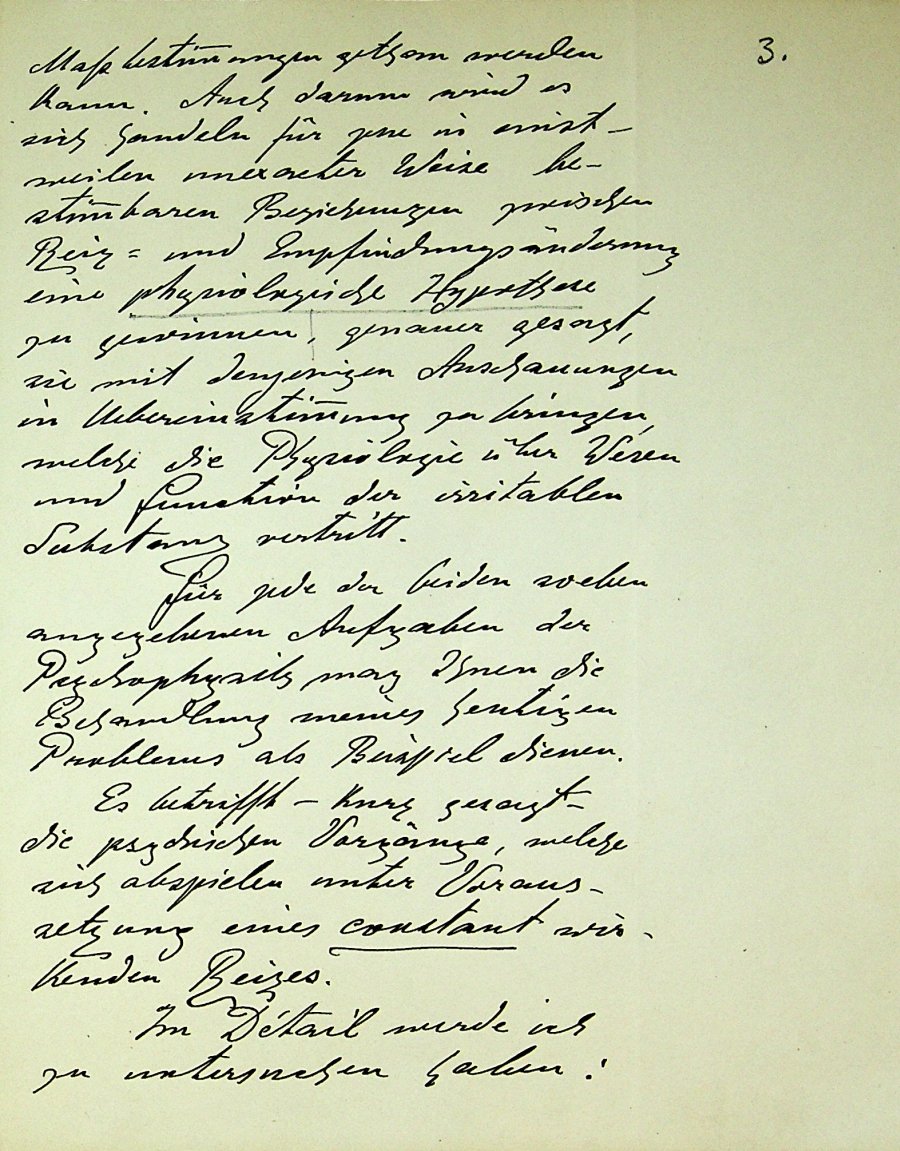 3.
Maßbestim̅ungen gethan werden
kann. Auch darum wird es
sich handeln für jene in einst-
weilen unexacter Weise be-
stim̅baren Beziehungen zwischen
Reiz= und Empfindungsänderung
eine physiologische Hypothese
zu gewinnen, genauer gesagt,
sie mit denjenigen Anschauungen
in Uebereinstim̅ung zu bringen,
welche die Physiologie über Wesen
und Function der irritablen
Substanz vertritt.
Für jede der beiden soeben
angegebenen Aufgaben der
Psychophysik mag Ihnen die
Behandlung meines heutigen
Problems als Beispiel dienen.
Es betrifft – kurz gesagt –
die psychischen Vorgänge, welche
sich abspielen unter Voraus-
setzung eines constant wir-
kenden Reizes.
Im Détail werde ich
zu untersuchen haben: